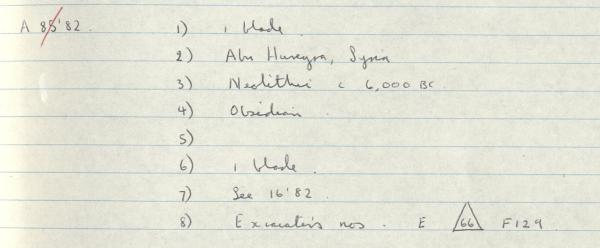 A 85'82. 1) 1 blade.
2) Abu Hureyra, Syria
3) Neolithic c 6,000 BC.
4) Obsidian.
5)
6) 1 blade.
7) See 16'82.
8) Excavator's nos. E 66 F129